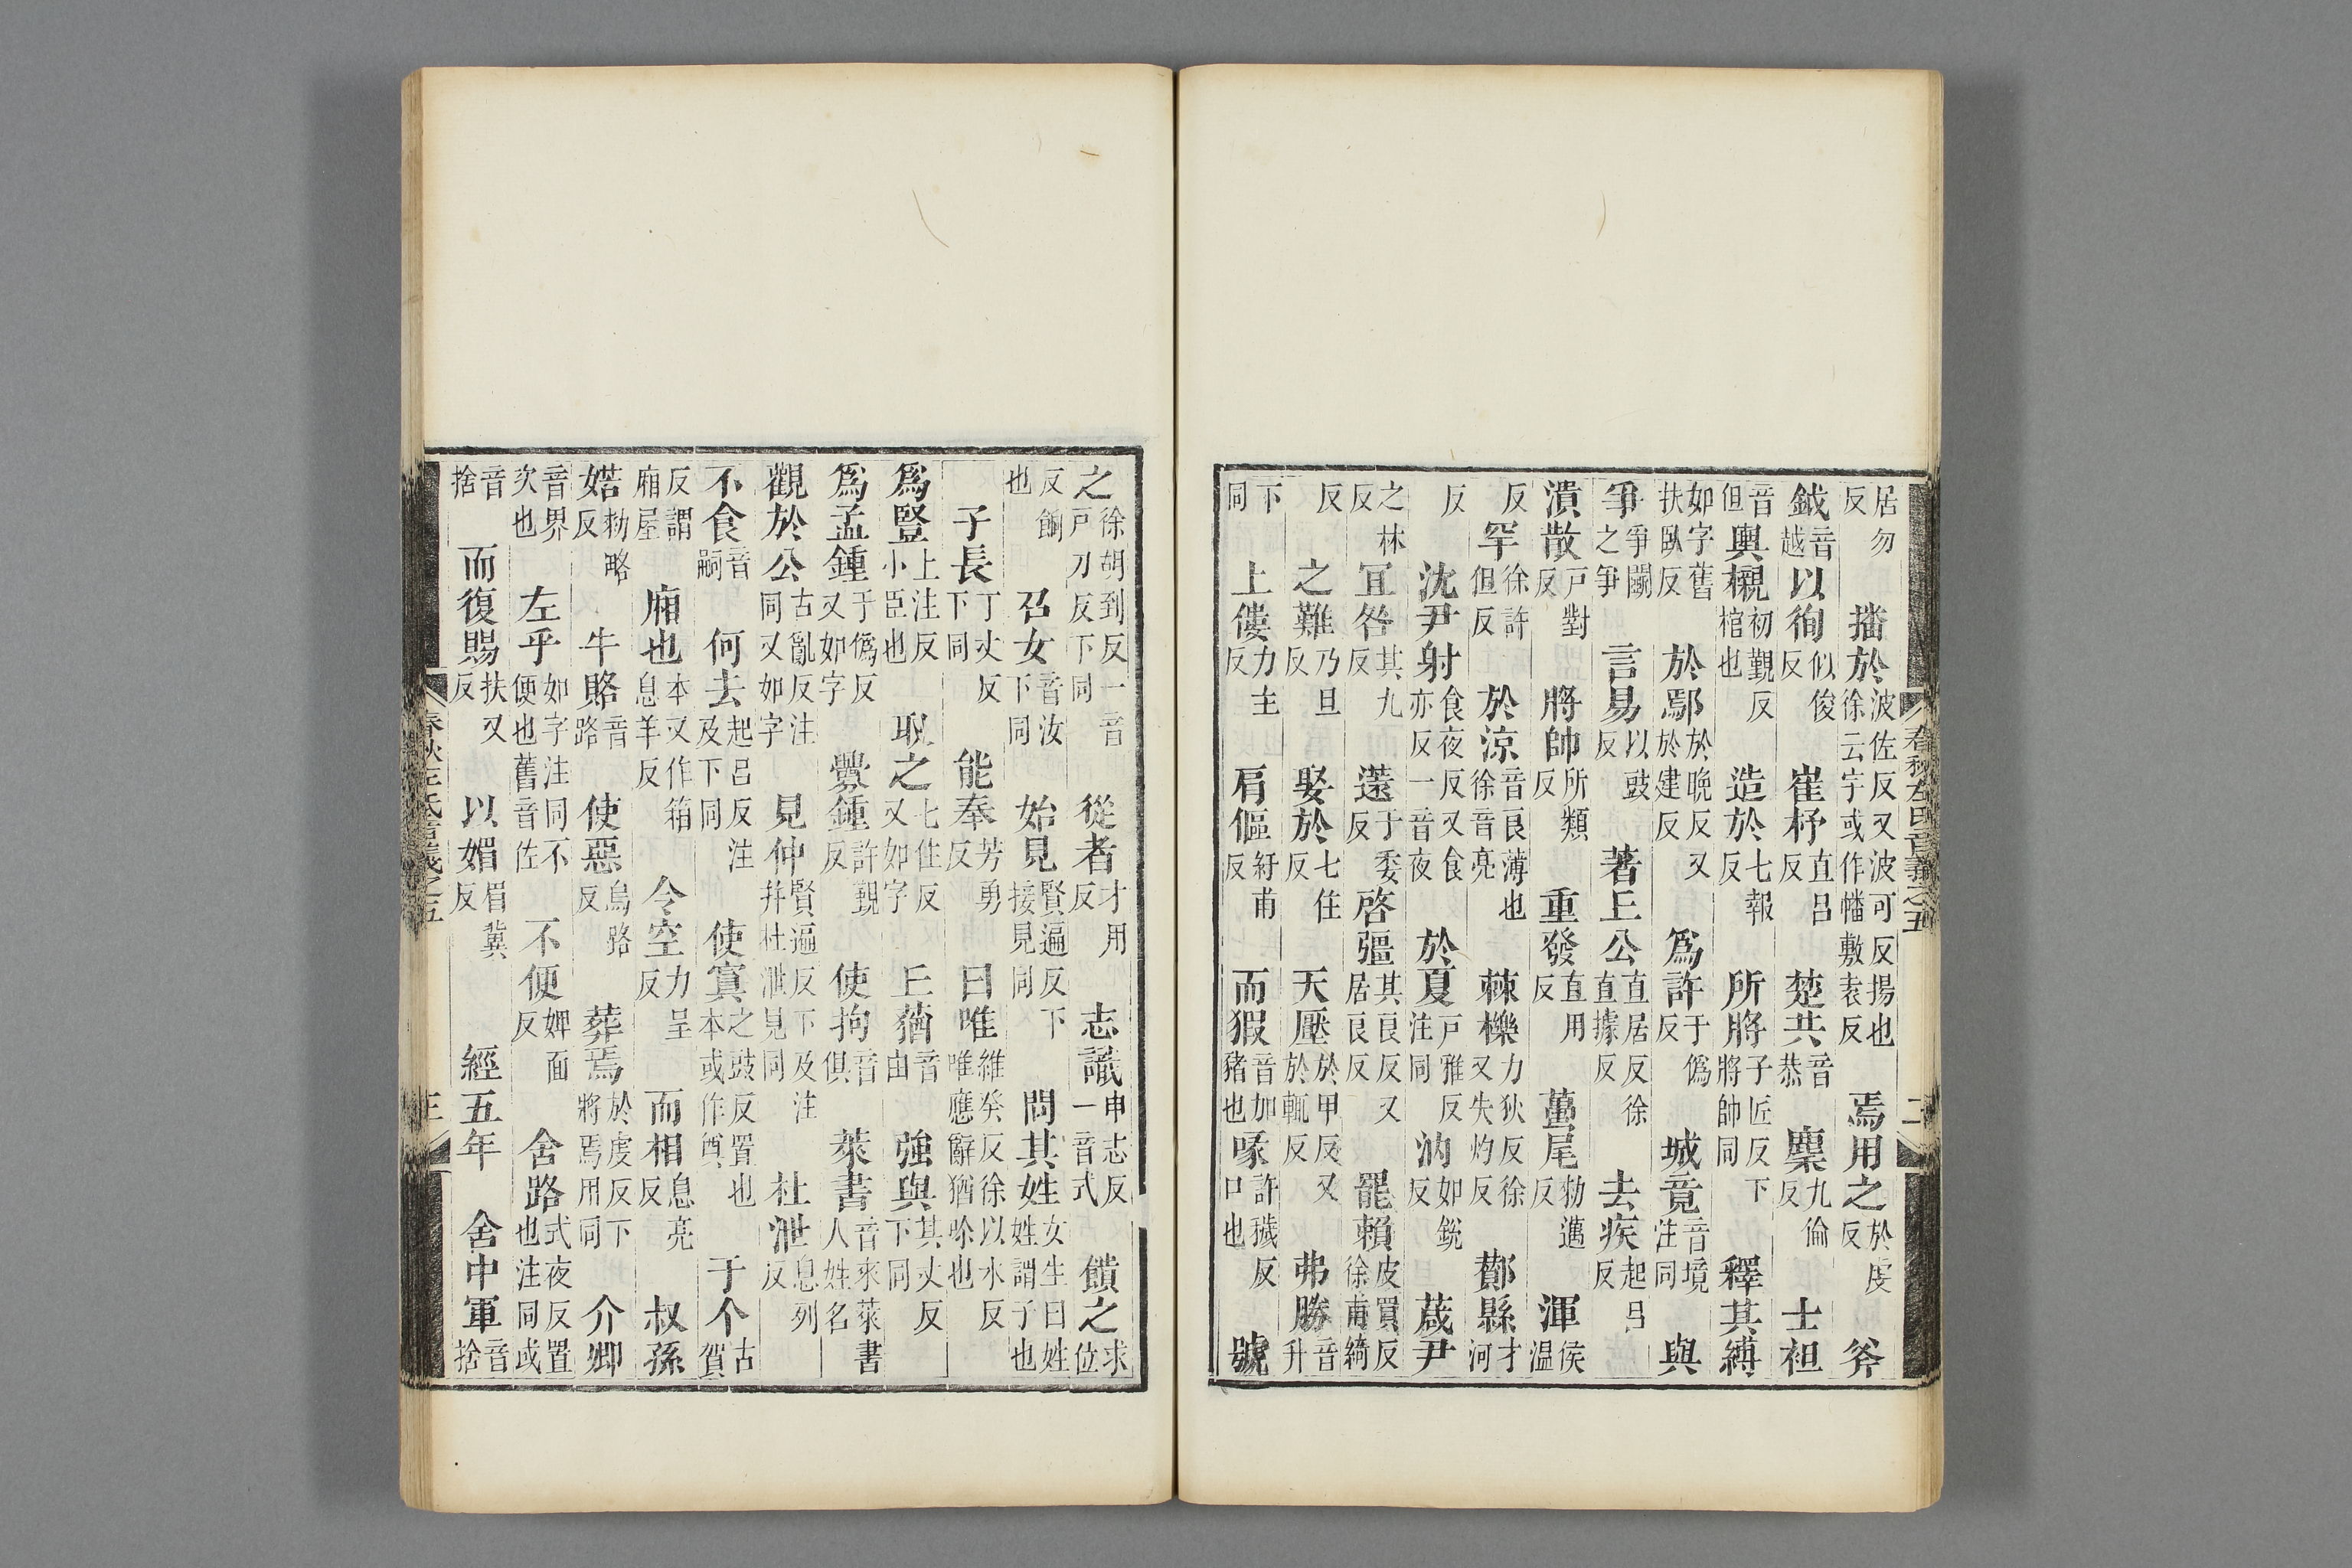 春秋左氏音義之五　二
居勿反　播於波佐反又波可反揚也徐云字或作幡敷袁反　焉用之於虔反　斧
鉞音越　以徇似俊反　崔杼直呂反　楚共音恭　麇九倫反　士袒
音但　輿櫬初覲反棺也　造於七報反　所將子匠反下將帥同　釋其縛
如字舊扶臥反　於鄢於晚反又於建反　爲許于僞反　城竟音境注同　與
爭爭鬭之爭　言易以豉反　著丘公直居反徐直據反　去疾起呂反
潰散戶對反　將帥所類反　重發直用反　蠆尾勑邁反　渾侯溫
反　罕徐許但反　於涼音良薄也徐音亮　棘櫟力狄反徐又失灼反　酇縣才河
反　沈尹射食夜反又食亦反一音夜　於夏戶雅反注同　汭如銳反　葴尹
之林反　宜咎其九反　薳于委反　啓彊其良反又居良反　罷賴皮買反徐甫綺
反　之難乃旦反　娶於七住反　天壓於甲反又於輒反　弗勝音升
下同　上僂力主反　肩傴紆甫反　而猳音加豬也　喙許穢反口也　號
之徐胡到反一音戶刀反下同　從者才用反　志識申志反一音式　饋之求位
反餉也　召女音汝下同　始見賢遍反下接見同　問其姓女生曰姓姓謂子也
子長丁丈反下同　能奉芳勇反　曰唯維癸反徐以水反唯應辭猶唹也
爲豎上注反小臣也　取之七住反又如字　丘蕕音由　強與其丈反下同
爲孟鍾于僞反又如字　釁鍾許覲反　使拘音俱　萊書音來萊書人姓名
觀於公古亂反注同又如字　見仲賢遍反下及注并杜泄見同　杜泄息列反
不食音嗣　何去起呂反注及下同　使寘之豉反置也本或作奠　于个古賀
反謂廂屋　廂也本又作箱息羊反　令空力呈反　而相息亮反　叔孫
婼勑略反　牛賂音路　使惡烏路反　葬焉於虔反下將焉用同　介卿
音界次也　左乎如字注同不便也舊音佐　不便婢面反　舍路式夜反置也注同或
音捨　而復賜扶又反　以媚眉冀反　經五年　舍中軍音捨
春秋左氏音義之五　三